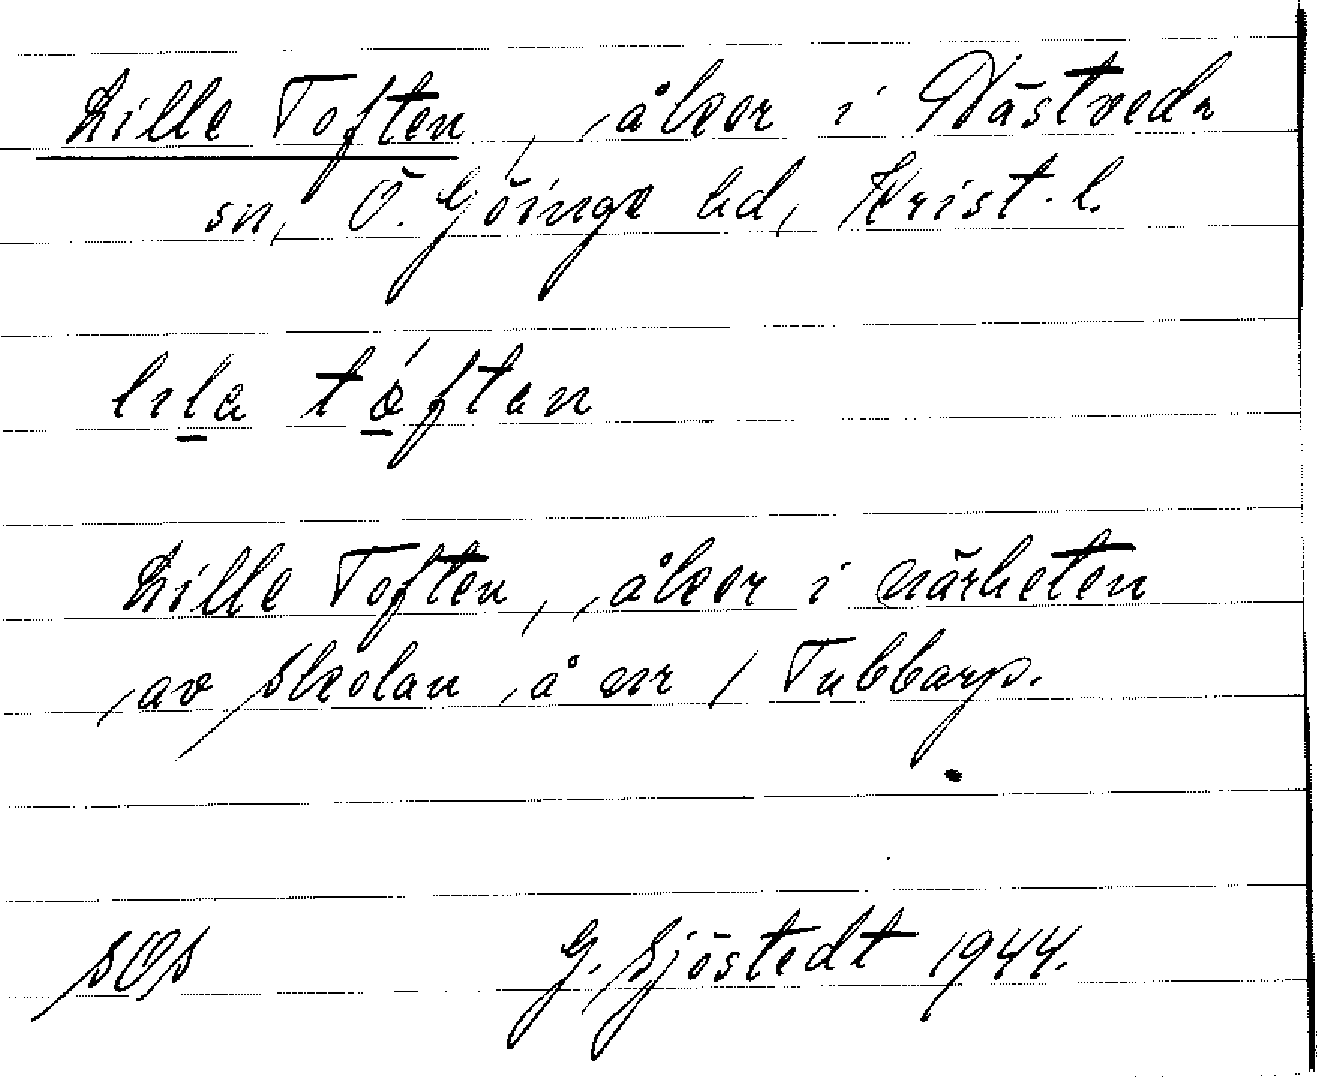 Lille Toften, åker i Västveda
sn, Ö. Göinge hd, Krist. l.
lila tóftan
Lille Toften, åker i närheten
av skolan å nr 1 Tubbarp.
SOS G. Sjöstedt 1944.